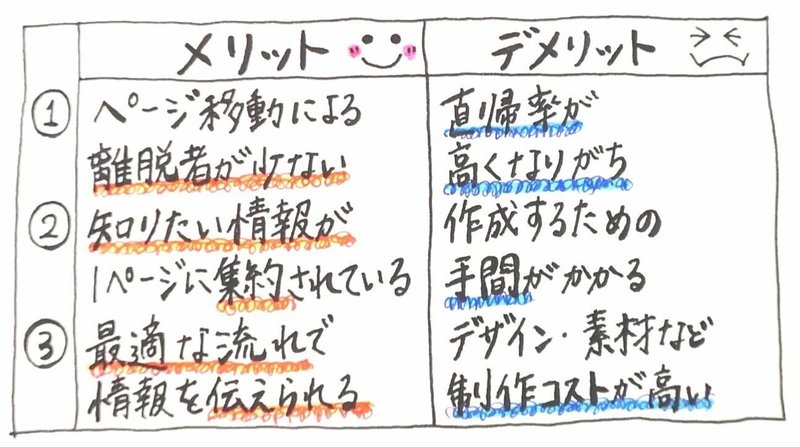 メリット デメリット
① ページ移動による 直帰率が
離脱者が少ない 高くなりがち
② 知りたい情報が 作成するための
1ページに集約されている 手間がかかる
③ 最適な流れで デザイン・素材など
情報を伝えられる 制作コストが高い